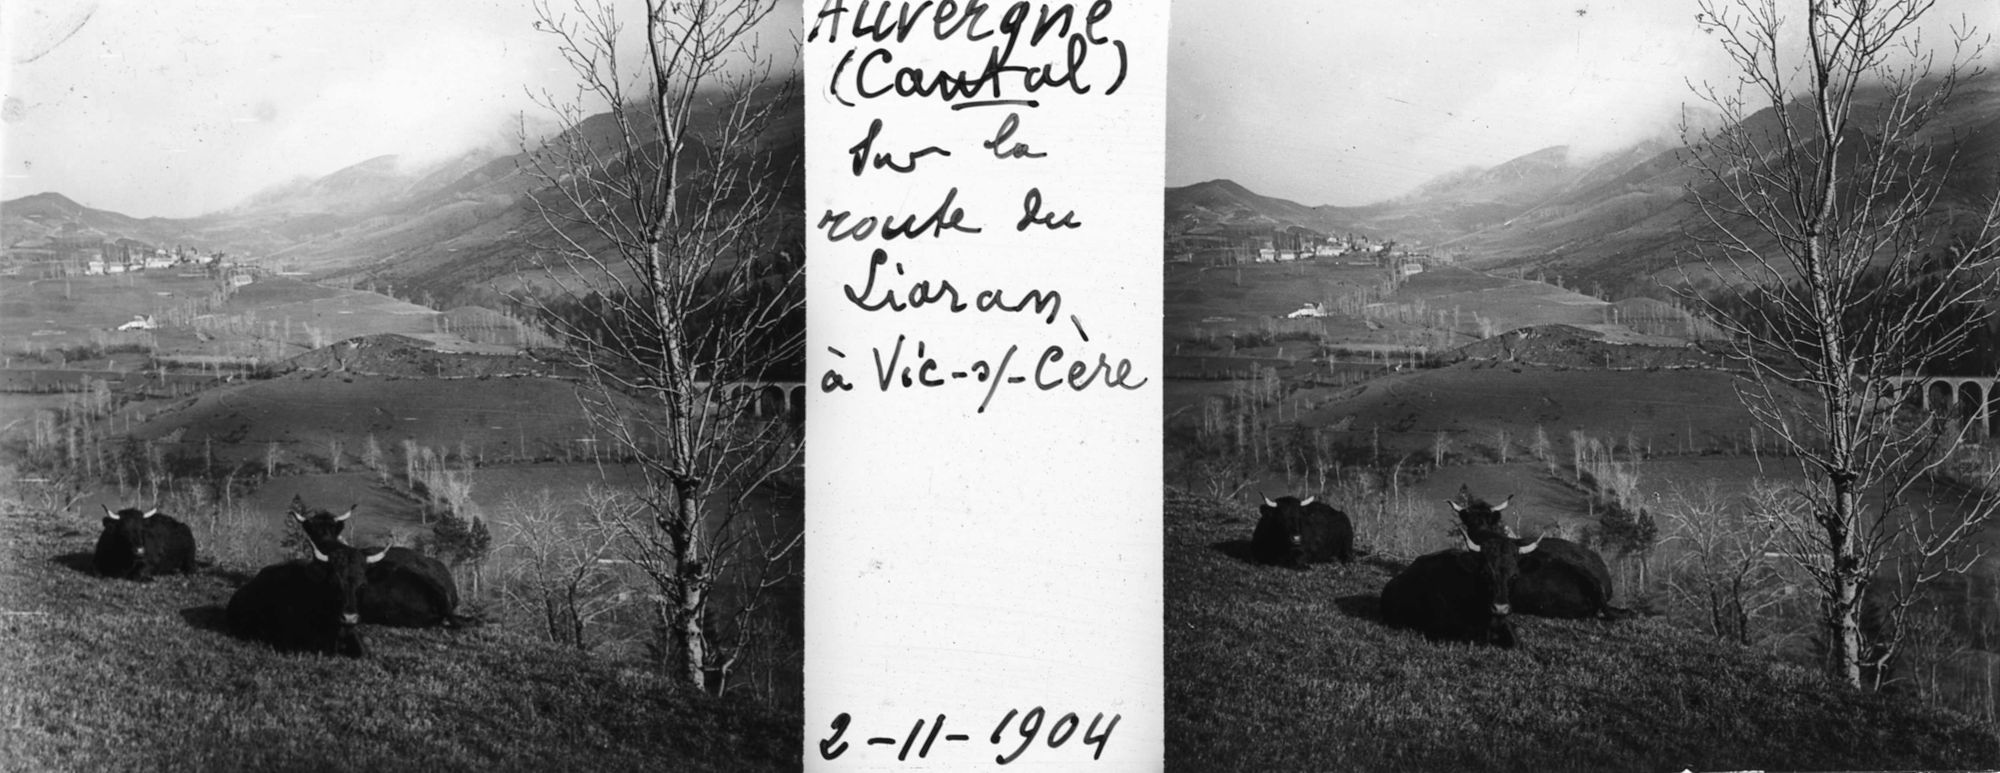 Auvergne
(Cantal)
Sur la
route du
Lioran,
à Vic-s/-Cère
2-11-1904